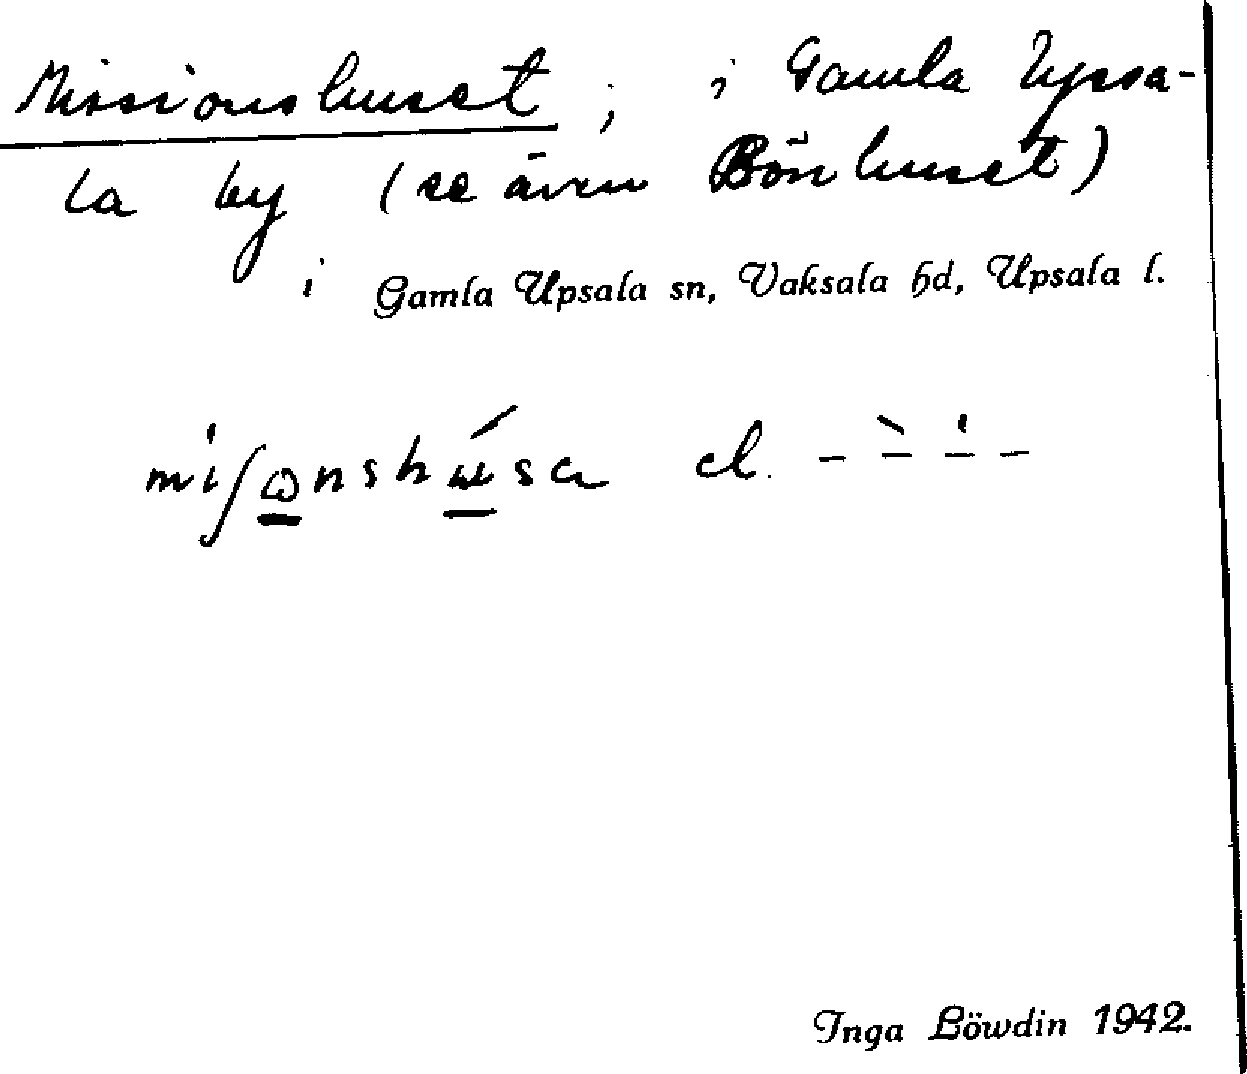 Missionshuset ; i Gamla Upsa-
la by (se även Bönhuset)
i Gamla Upsala sn, Vaksala hd, Upsala l.
el. - - - -
Inga Löwdin 1942.